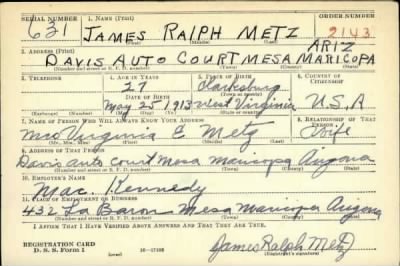 SERIAL NUMBER 1. NAME (Print) ORDER NUMBER
631 JAMES RALPH METZ 2143
(First) (Middle) (Last)
2. ADDRESS (Print) ARIZ
DAVIS AUTO COURT MESA MARICOPA
(Number and street or R. F. D. number) (Town) (County) (State)
3. TELEPHONE 4. AGE IN YEARS 5. PLACE OF BIRTH 6. COUNTRY OF CITIZENSHIP
27 Clarksburg
DATE OF BIRTH (Town or county)
May 25 1913 West Virginia U.S.A
(Exchange) (Number) (Mo.) (Day) (Yr.) (State or country)
7. NAME OF PERSON WHO WILL ALWAYS KNOW YOUR ADDRESS 8. RELATIONSHIP OF THAT PERSON
Mrs Virginia E. Metz Wife
(Mr., Mrs., Miss) (First) (Middle) (Last)
9. ADDRESS OF THAT PERSON
Davis auto court Mesa Maricopa Arizona
(Number and street or R. F. D. number) (Town) (County) (State)
10. EMPLOYER'S NAME
Mac. Kennedy
11. PLACE OF EMPLOYMENT OR BUSINESS
432 La Baron Mesa Maricopa Arizona
(Number and street or R. F. D. number) (Town) (County) (State)
I AFFIRM THAT I HAVE VERIFIED ABOVE ANSWERS AND THAT THEY ARE TRUE.
REGISTRATION CARD
D. S. S. Form 1 (over) 16—17105 James Ralph Metz
(Registrant's signature)